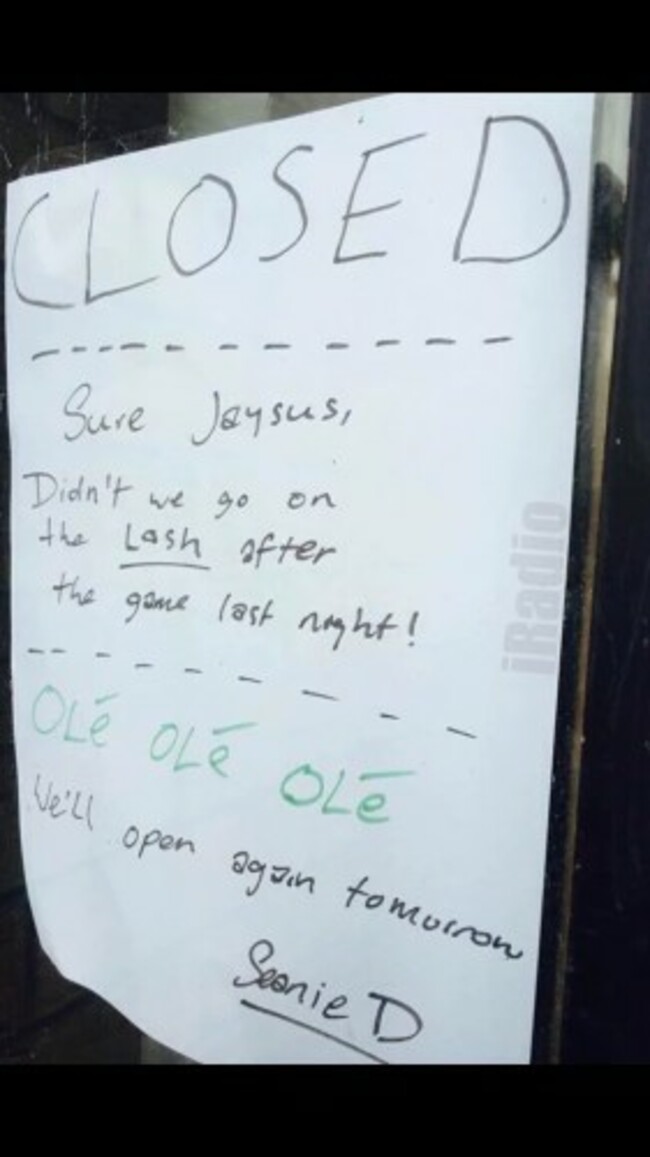 CLOSED
Sure Jaysus,
Didn't we go on
the Lash after
the game last night!
OLé OLé OLé
We'll open again tomorrow
Seanie D
iRadio